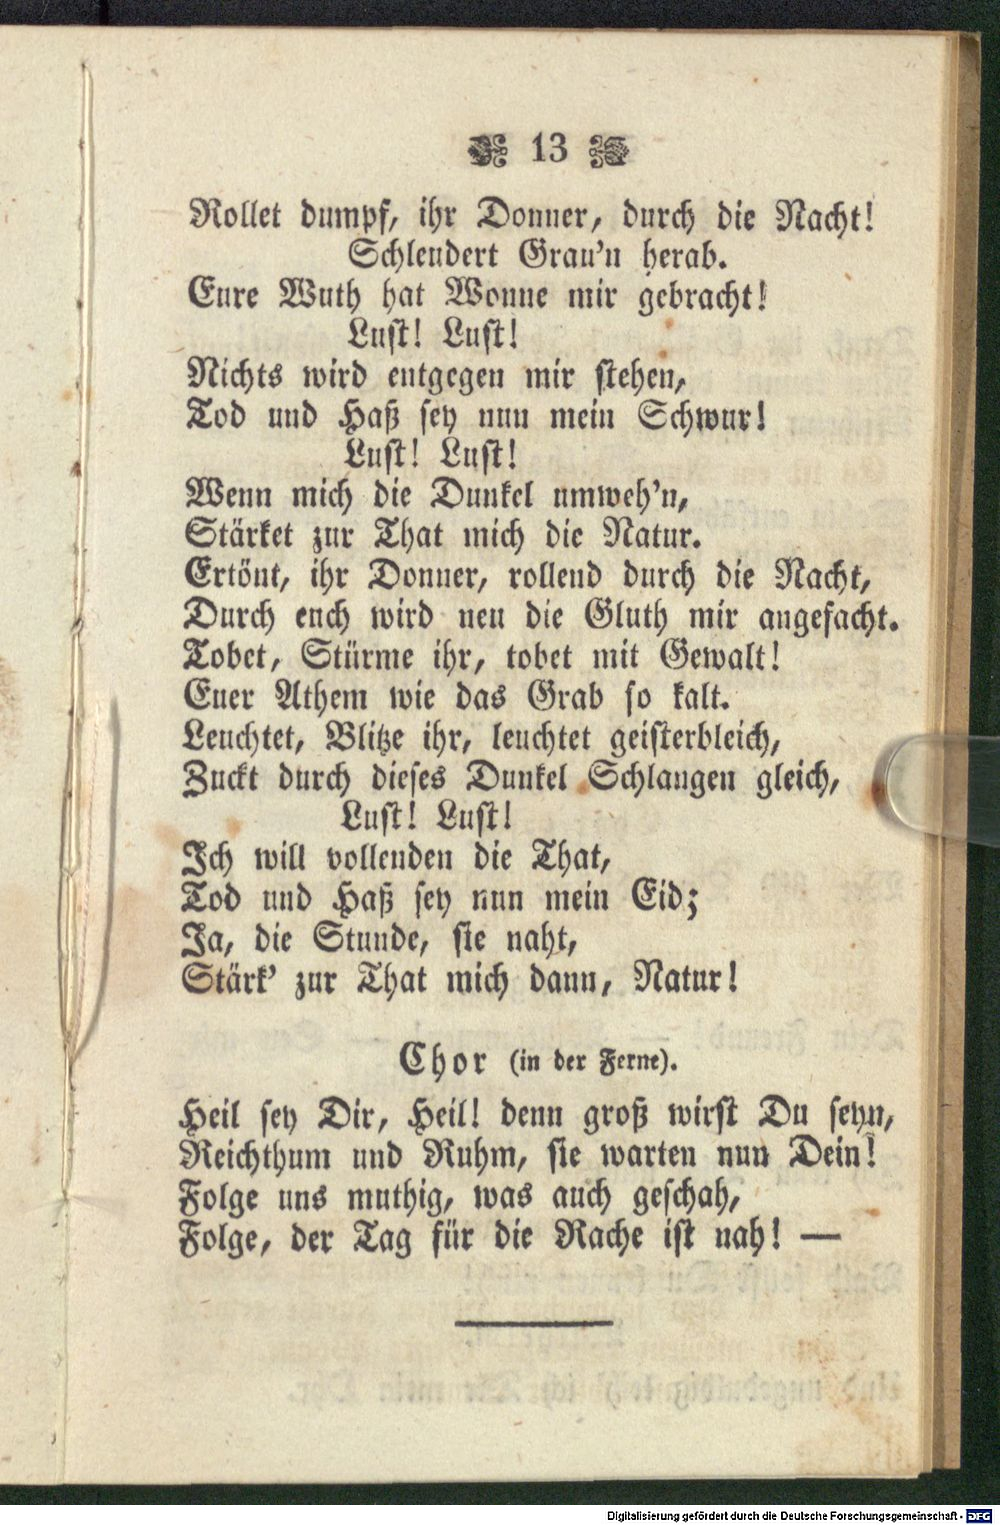 13
Rollet dumpf, ihr Donner, durch die Nacht!
Schleudert Grau'n herab.
Eure Wuth hat Wonne mir gebracht!
Lust! Lust!
Nichts wird entgegen mir stehen,
Tod und Haß sey nun mein Schwur!
Lust! Lust!
Wenn mich die Dunkel umweh'n,
Stärket zur That mich die Natur.
Ertönt, ihr Donner, rollend durch die Nacht,
Durch euch wird neu die Gluth mir angefacht.
Tobet, Stürme ihr, tobet mit Gewalt!
Euer Athem wie das Grab so kalt.
Leuchtet, Blitze ihr, leuchtet geisterbleich,
Zuckt durch dieses Dunkel Schlangen gleich,
Lust! Lust!
Ich will vollenden die That,
Tod und Haß sey nun mein Eid;
Ja, die Stunde, sie naht,
Stärk' zur That mich dann, Natur!
Chor (in der Ferne).
Heil sey Dir, Heil! denn groß wirst Du seyn,
Reichthum und Ruhm, sie warten nun Dein!
Folge uns muthig, was auch geschah,
Folge, der Tag für die Rache ist nah! —
Digitalisierung gefördert durch die Deutsche Forschungsgemeinschaft - DFG